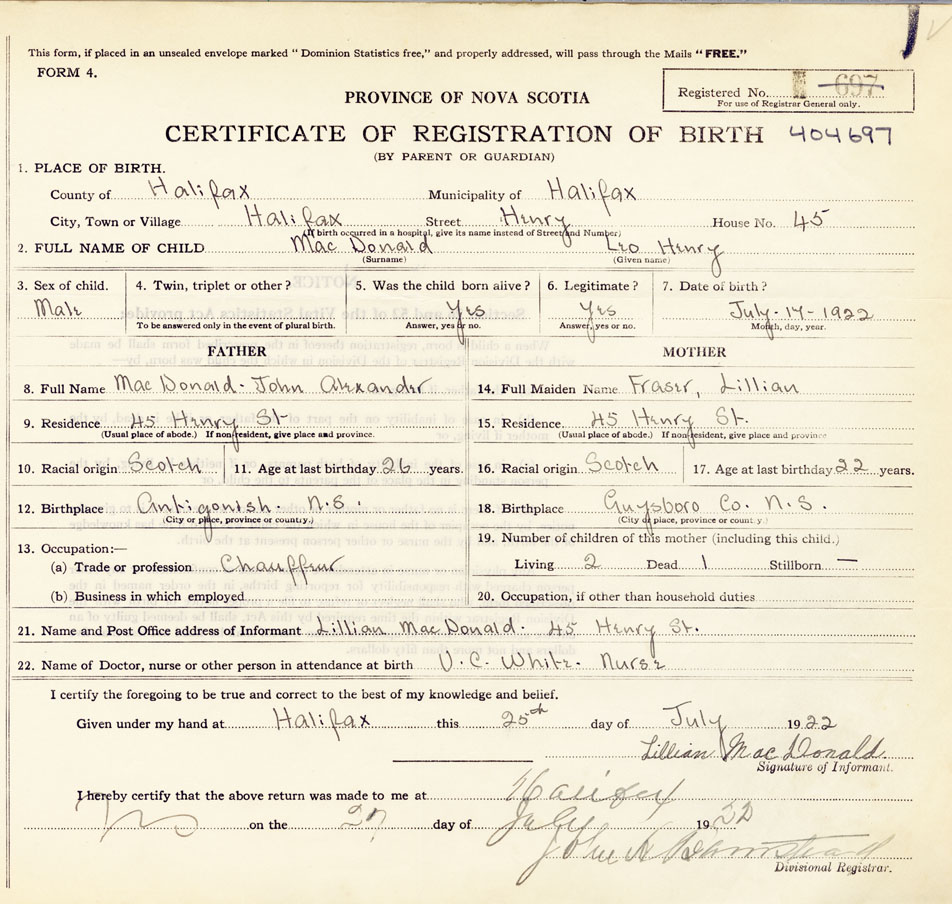 This form, if placed in an unsealed envelope marked "Dominion Statistics free," and properly addressed, will pass through the Mails "FREE."
FORM 4.
Registered No. 697
For use of Registrar General only.
PROVINCE OF NOVA SCOTIA
CERTIFICATE OF REGISTRATION OF BIRTH 404697
(BY PARENT OR GUARDIAN)
1. PLACE OF BIRTH.
County of Halifax Municipality of Halifax
City, Town or Village Halifax Street Henry House No. 45
(If birth occurred in a hospital, give its name instead of Street and Number)
2. FULL NAME OF CHILD Mac Donald Leo Henry
(Surname) (Given name)
3. Sex of child. 4. Twin, triplet or other? 5. Was the child born alive? 6. Legitimate? 7. Date of birth?
Male Yes Yes July-17-1922
To be answered only in the event of plural birth. Answer, yes or no. Answer, yes or no. Month, day, year.
FATHER MOTHER
8. Full Name Mac Donald- John Alexander 14. Full Maiden Name Fraser, Lillian
9. Residence 45 Henry St 15. Residence. 45 Henry St.
(Usual place of abode.) If non-resident, give place and province. (Usual place of abode.) If non-resident, give place and province
10. Racial origin Scotch 11. Age at last birthday 26 years. 16. Racial origin Scotch 17. Age at last birthday 22 years.
12. Birthplace Antigonish. N.S. 18. Birthplace Guysboro Co. N.S.
(City or place, province or country.) (City or place, province or country.)
19. Number of children of this mother (including this child.)
13. Occupation:—
(a) Trade or profession Chauffeur Living 2 Dead 1 Stillborn —
(b) Business in which employed 20. Occupation, if other than household duties
21. Name and Post Office address of Informant Lillian Mac Donald. 45 Henry St.
22. Name of Doctor, nurse or other person in attendance at birth V. C. White. Nurse
I certify the foregoing to be true and correct to the best of my knowledge and belief.
Given under my hand at Halifax this 25th day of July 1922
Lillian Mac Donald.
Signature of Informant.
I hereby certify that the above return was made to me at Halifax
NS on the 27 day of July 1922
John A
Divisional Registrar.